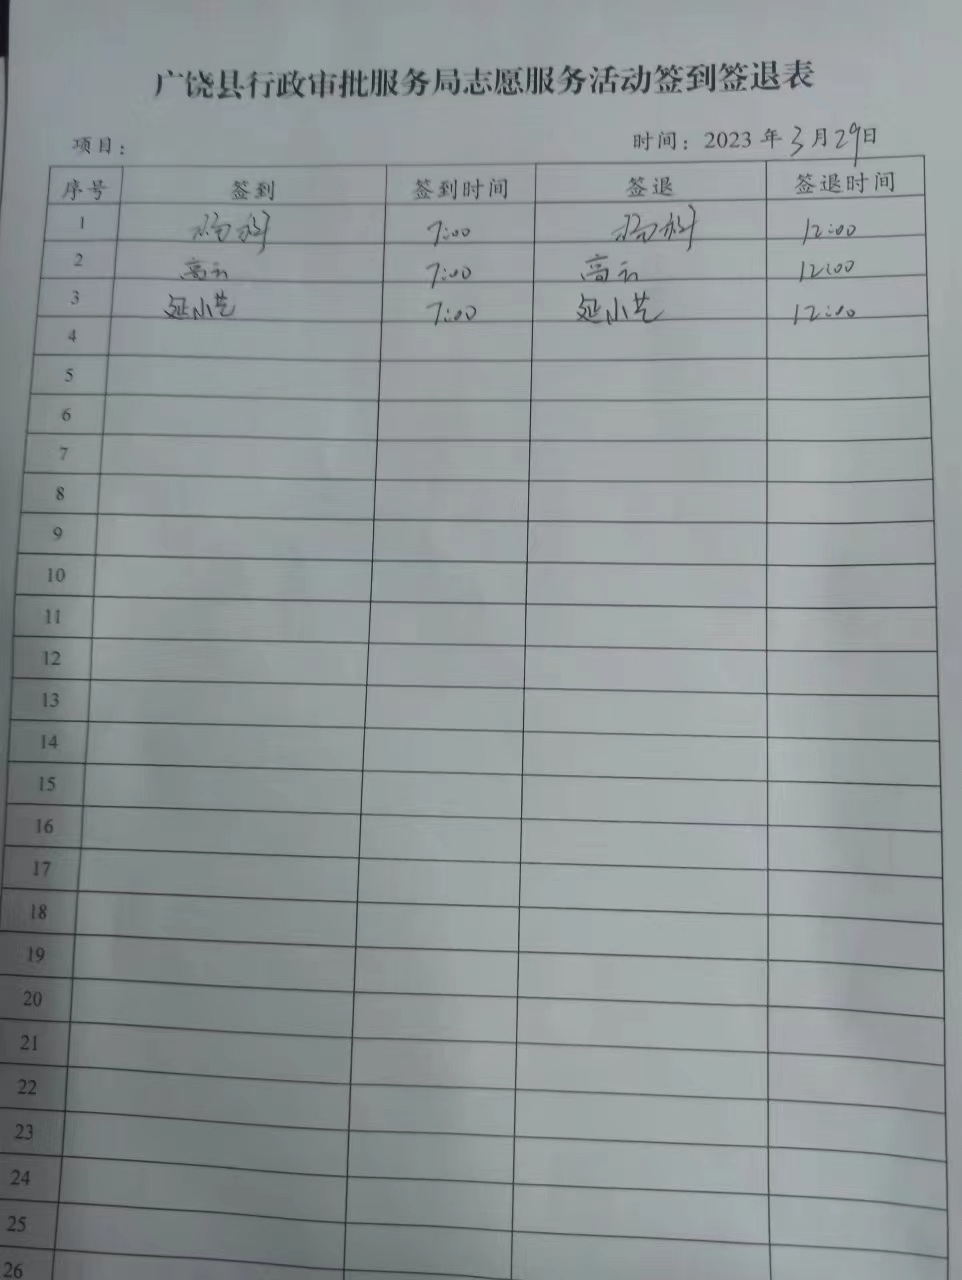 广饶县行政审批服务局志愿服务活动签到签退表
项目： 时间：2023年3月29日
序号 签到 签到时间 签退 签退时间
1 7:00 12:00
2 高云 7:00 高云 12:00
3 延小艺 7:00 延小艺 12:00
4
5
6
7
8
9
10
11
12
13
14
15
16
17
18
19
20
21
22
23
24
25
26